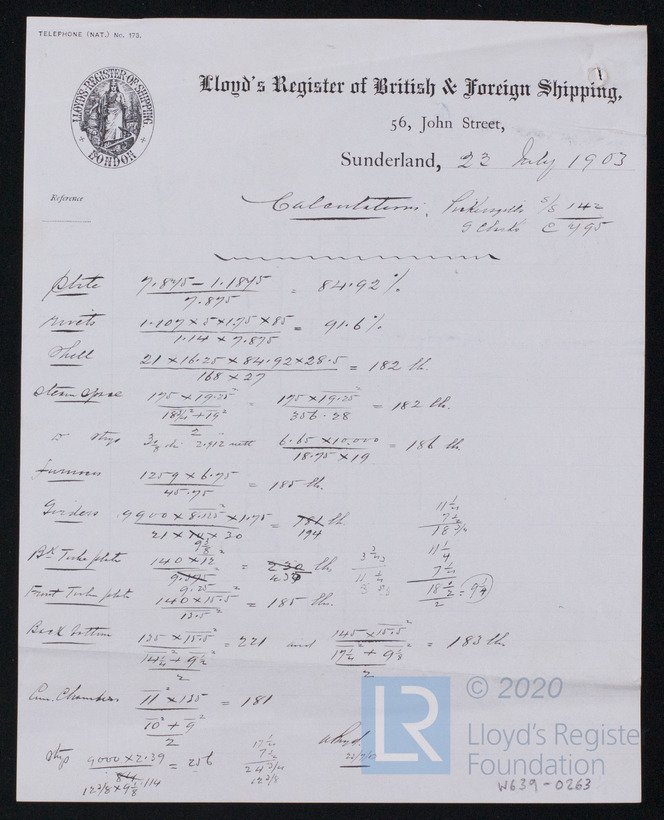 TELEPHONE (NAT.) No. 173.
1
LLOYD'S REGISTER OF SHIPPING
LONDON
Lloyd's Register of British & Foreign Shipping,
56, John Street,
Sunderland, 23 July 1903
Reference
Calculations, S/S 142
G Clark's C 495
plate 7.875 - 1.1875 / 7.875 = 84.92%
rivets 1.107 × 5 × 1.75 × 85 / 1.14 × 7.875 = 91.6%
Shell 21 × 16.25 × 84.92 × 28.5 / 168 × 27 = 182 lb.
Steam Space 175 × 19.25² / 18¾² + 19² / 2 = 175 × 19.25² / 356.28 = 182 lb.
D° stays 2.912 nett 6.65 × 10,000 / 18.75 × 19 = 186 lb
Furnaces 1259 × 6.75 / 45.75 = 185 lb.
Girders 9900 × 8.125² × 1.75 / 21 × 30 = 181 lb
194
9⅜
11½
7¼
18¾
Bk Tube plate 140 × 12² / 9.375 = 230 lb
9.25
430
11¼
7¼
18½ / 2 = 9¼
Front Tube plate 140 × 15.5² / 13.5² = 185 lb.
Back bottom 125 × 15.5² / 14½² + 9½² / 2 = 221 and 145 × 15.5² / 17¼² + 9⅛² / 2 = 183 lb
Com. Chambers 11² × 135 / 10² + 9² / 2 = 181
stays 9000 × 2.39 / 84 = 256
12⅜ × 9⅛ = 114
17½
7¼
24¾
12⅜
© 2020
LR
Lloyd's Register
Foundation
W639-0263